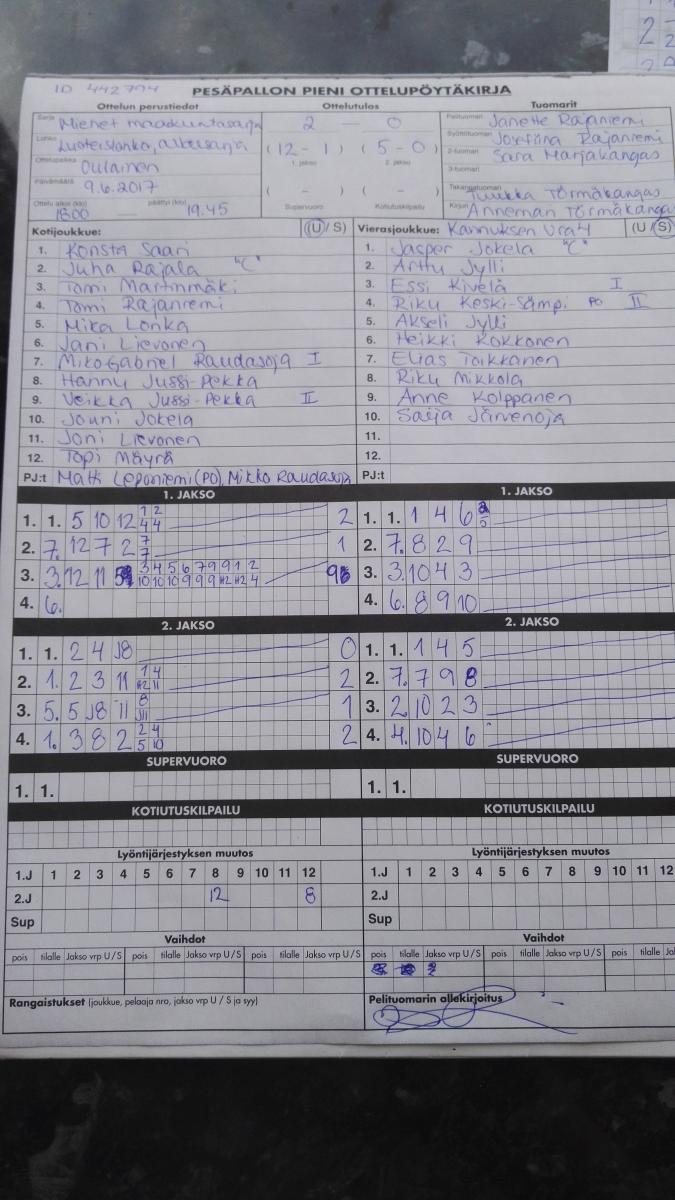 ID 442794
PESÄPALLON PIENI OTTELUPÖYTÄKIRJA
Ottelun perustiedot Ottelutulos Tuomarit
Sarja Miehet maakuntasarja 2 — 0 Pelituomari Janette Rajaniemi
Lohko Luoteislohko, alkusarja (12 - 1) (5 - 0) Syöttötuomari Josefiina Rajaniemi
1. jakso 2. jakso 2-tuomari Sara Marjakangas
Ottelupaikka Oulainen 3-tuomari
Päivämäärä 9.6.2017 ( - ) ( - ) Takarajatuomari Tuukka Törmäkangas
Ottelu alkoi (klo) 18.00 päättyi (klo) 19.45 Supervuoro Kotiutuskilpailu Kirjuri Anneman Törmäkangas
Kotijoukkue: (U/S) Vierasjoukkue: Kannuksen Ura4 (U/S)
1. Konsta Saari 1. Jasper Jokela "C"
2. Juha Rajala "C" 2. Arttu Jylli
3. Tomi Martinmäki 3. Essi Kivelä I
4. Tomi Rajaniemi 4. Riku Keski-Sämpi PO II
5. Mika Lonka 5. Akseli Jylli
6. Jani Lievonen 6. Heikki Kokkonen
7. MikoGabriel Raudasoja I 7. Elias Toikkanen
8. Hannu Jussi-Pekka 8. Riku Mikkola
9. Veikka Jussi-Pekka II 9. Anne Kolppanen
10. Jouni Jokela 10. Saija Järvenoja
11. Joni Lievonen 11.
12. Topi Mäyrä 12.
PJ:t Matti Leponiemi (PO), Mikko Raudasoja PJ:t
1. JAKSO 1. JAKSO
1. 1. 5 10 12 1/4 2/4 2 1. 1. 1 4 6
2. 7. 12 7 2 7/7 1 2. 7. 8 2 9
3. 3. 12 11 3/10 4/10 5/10 6/9 7/9 9/9 9/12 1/12 2/4 9 3. 3. 10 4 3
4. 6. 4. 6. 8 9 10
2. JAKSO 2. JAKSO
1. 1. 2 4 J8 0 1. 1. 1 4 5
2. 1. 2 3 11 1/12 4/11 2 2. 7. 7 9 8
3. 5. 5 J8 11 8/J11 1 3. 2. 10 2 3
4. 1. 3 8 2 2/5 4/10 2 4. 4. 10 4 6
SUPERVUORO SUPERVUORO
1. 1. 1. 1.
KOTIUTUSKILPAILU KOTIUTUSKILPAILU
Lyöntijärjestyksen muutos Lyöntijärjestyksen muutos
1.J 1 2 3 4 5 6 7 8 9 10 11 12 1.J 1 2 3 4 5 6 7 8 9 10 11 12
2.J 12 8 2.J
Sup Sup
Vaihdot Vaihdot
pois tilalle Jakso vrp U/S pois tilalle Jakso vrp U/S pois tilalle Jakso vrp U/S pois tilalle Jakso vrp U/S pois tilalle Jakso vrp U/S pois tilalle
Rangaistukset (joukkue, pelaaja nro, jakso vrp U / S ja syy) Pelituomarin allekirjoitus